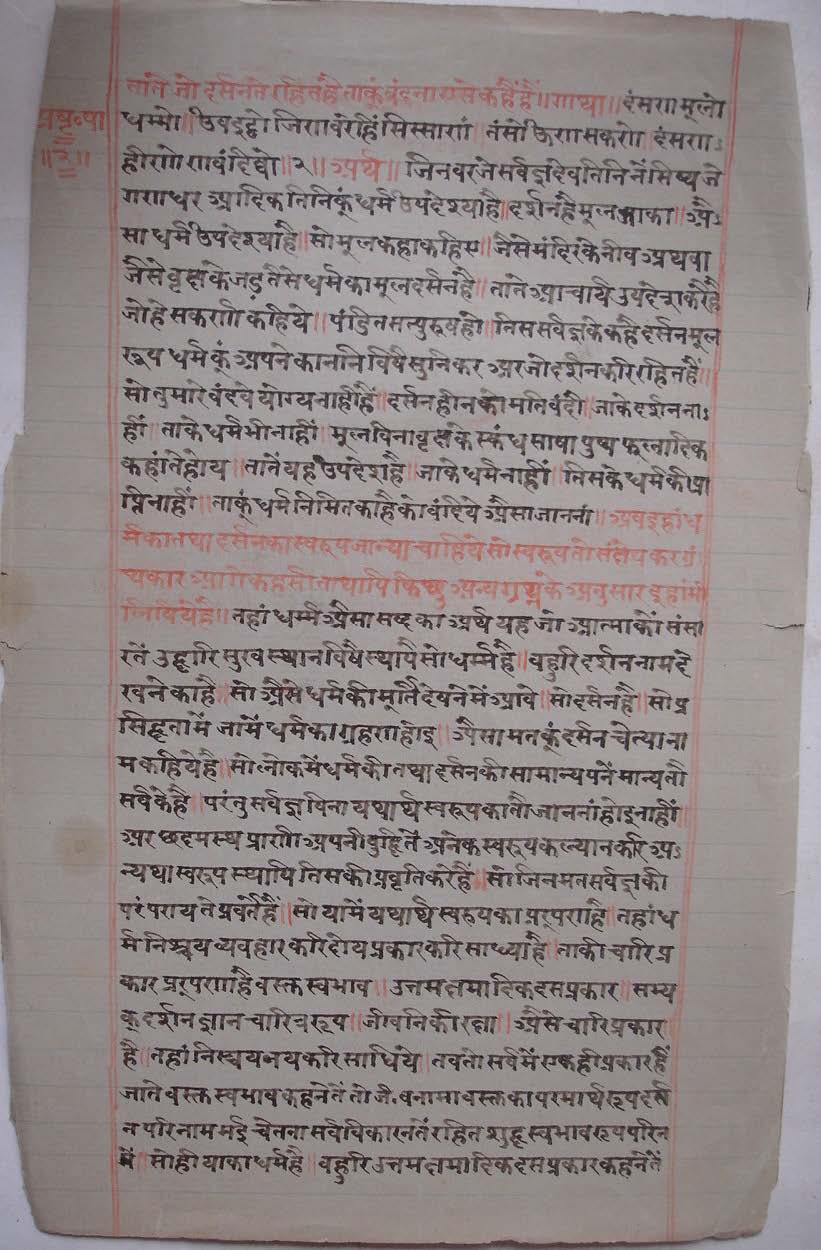 तातें जो दर्सनतें रहित है ताकूं वंदना न से कहैं हैं॥ गाथा॥ दंसणमूलो
धम्मो॥ उवइट्ठो जिणवरेहिं सिस्साणं॥ तं सोऊण सकणे॥ दंसण
॥२॥
हीणो ण वंदिव्वो॥२॥ अर्थ॥ जिनवर जे सर्वज्ञदेव तिनिनें सिष्य जे
गणधर आदिक तिनिकूं धर्म उपदेश्या है॥ दर्शन है मूल जाका॥ अै
सा धर्म उपदेश्या है॥ सो मूल कहा कहिए॥ जैसे मंदिरके नीव अथवा
जैसे वृक्षके जड तैसे धर्मका मूल दर्सन है॥ तातें आचार्य उपदेश करै है
जो हे सकर्णा कहिये॥ पंडित सत्पुरुष हो॥ तिस सर्वज्ञके कहे दर्सनमूल
रूप धर्मकूं अपने काननि विषै सुनिकर अर जो दर्शनकरि रहित हैं॥
सो तुमारे वंदवे योग्य नाहीं हैं॥ दर्सनहीनको मति वंदौ॥ जाके दर्शन ना
हीं॥ ताके धर्म भी नाहीं॥ मूल विना वृक्षके स्कंध साषा पुष्प फलादिक
कहांतें होय॥ तातें यह उपदेश है॥ जाके धर्म नाहीं॥ तिसके धर्मकी प्रा
प्ति नाहीं॥ ताकूं धर्म निमित काहेको वंदिये अैसा जाननां॥ अब इहां ध
र्मका तथा दर्सनका स्वरूप जान्या चाहिये सो स्वरूप तो संक्षेपकर ग्रं
थकार आगे कहसी तथापि किछु अन्य ग्रंथके अनुसार इहां भी
लिषिये है॥ तहां धर्म्म अैसा सब्दका अर्थ यह जो आत्माकों संसा
रतें उद्धारि सुखस्थान विषै स्थापै सो धर्म्म है॥ बहुरि दर्शन नाम दे
खनेका है॥ सो अैसे धर्मकी मूर्ति देषनेमें आवे॥ सो दर्सन है॥ सो प्र
सिद्धतामें जामें धर्मका ग्रहण होइ॥ अैसा मतकूं दर्सन चेत्या ना
म कहिये है॥ सो लोकमें धर्मकी तथा दर्सनकी सामान्यपनें मान्यता
सर्वके है॥ परंतु सर्वज्ञ विना यथार्थ स्वरूपका तौ जाननां होइ नाहीं॥
अर छदमस्थ प्राणी अपनी बुद्धितैं अनेक स्वरूप कल्पना करि अ
न्यथा स्वरूप स्थापि तिसकी प्रवृति करे हैं॥ सो जिनमत सर्वज्ञकी
परंपराय तें प्रवर्ते हैं॥ सो यामें यथार्थ स्वरूपका प्ररूपण है॥ तहां ध
र्म निश्चय व्यवहार करि दोय प्रकार करि साध्या है॥ ताकी चारि प्र
कार प्ररूपणा है वस्तस्वभाव॥ उत्तमक्षमादिक दसप्रकार॥ सम्य
क्दर्शन ज्ञान चारित्ररूप॥ जीवनिकी रक्षा॥ अैसे चारिप्रकार
है॥ तहां निस्चयनयकरि साधिये॥ तब तो सर्वमें एकही प्रकार है
जातें वस्तस्वभाव कहनेतें तो जीवनामा वस्तका परमार्थरूप दर्स
न परिनाममई चेतना सर्व विकारनतें रहित शुद्ध स्वभावरूप परिन
मै॥ सोही याका धर्म है॥ बहुरि उत्तमक्षमादिक दसप्रकार कहनेतें